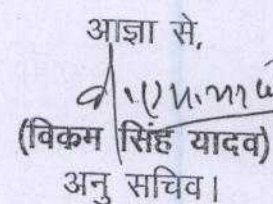 आज्ञा से,
(विकम सिंह यादव)
अनु सचिव।